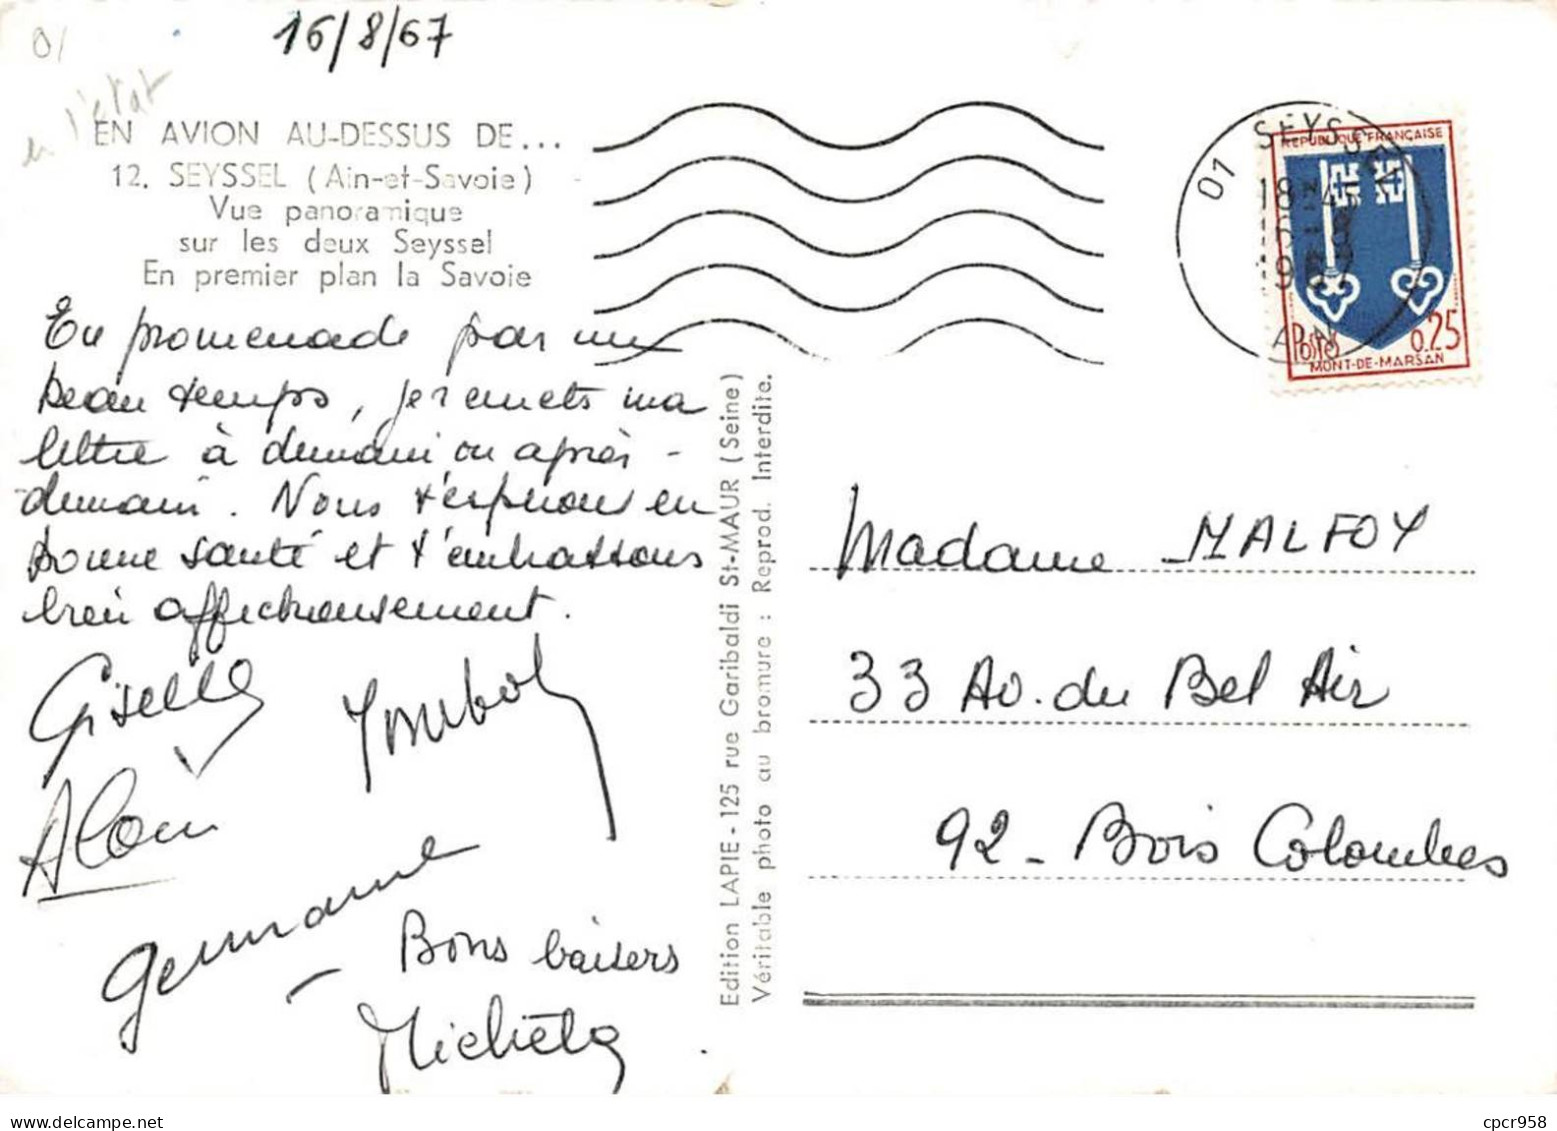 01
en l'état
16/8/67
EN AVION AU-DESSUS DE...
12. SEYSSEL (Ain-et-Savoie)
Vue panoramique
sur les deux Seyssel
En premier plan la Savoie
En promenade par un
beau temps, je remets ma
lettre à demain ou après-
demain. Nous t'espérons en
bonne santé et t'embrassons
bien affectueusement.
Giselle
Alain
Germaine
Bons baisers
Michèle
Edition LAPIE - 125 rue Garibaldi St-MAUR (Seine)
Véritable photo au bromure : Reprod. Interdite.
01 SEYSSEL
AIN
RÉPUBLIQUE FRANÇAISE
Postes 0.25
MONT-DE-MARSAN
Madame MALFOY
33 Av. du Bel Air
92 - Bois Colombes
cpcr958